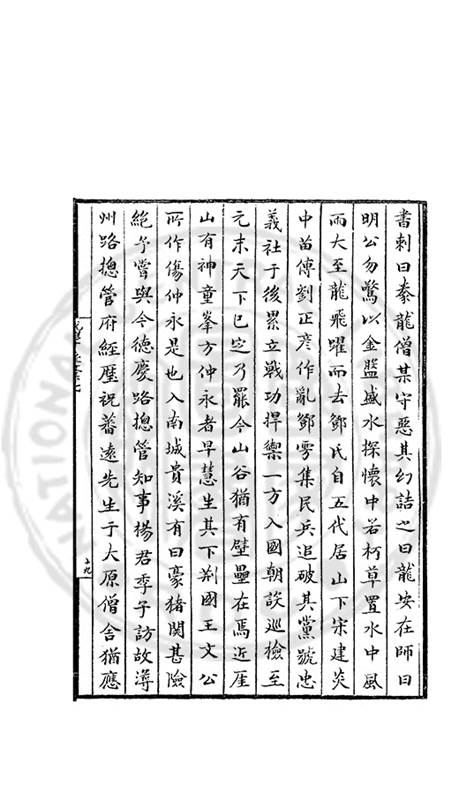 書刺曰豢龍僧某守惡其幻詰之曰龍安在師曰
明公勿驚以金盤盛水探懷中若朽草置水中風
雨大至龍飛躍而去鄧氏自五代居山下宋建炎
中苗傅劉正彦作亂鄧雱集民兵追破其黨號忠
義社于後累立戰功捍禦一方入國朝設巡檢至
元末天下已定乃罷今山谷猶有壁壘在焉近厓
山有神童峯方仲永者早慧生其下荆國王文公
所作傷仲永是也入南城貴溪有曰豪豬關甚險
絕予嘗與今德慶路摠管知事楊君季子訪故漳
州路摠管府經歷祝蕃遠先生于大原僧舍猶應
十九